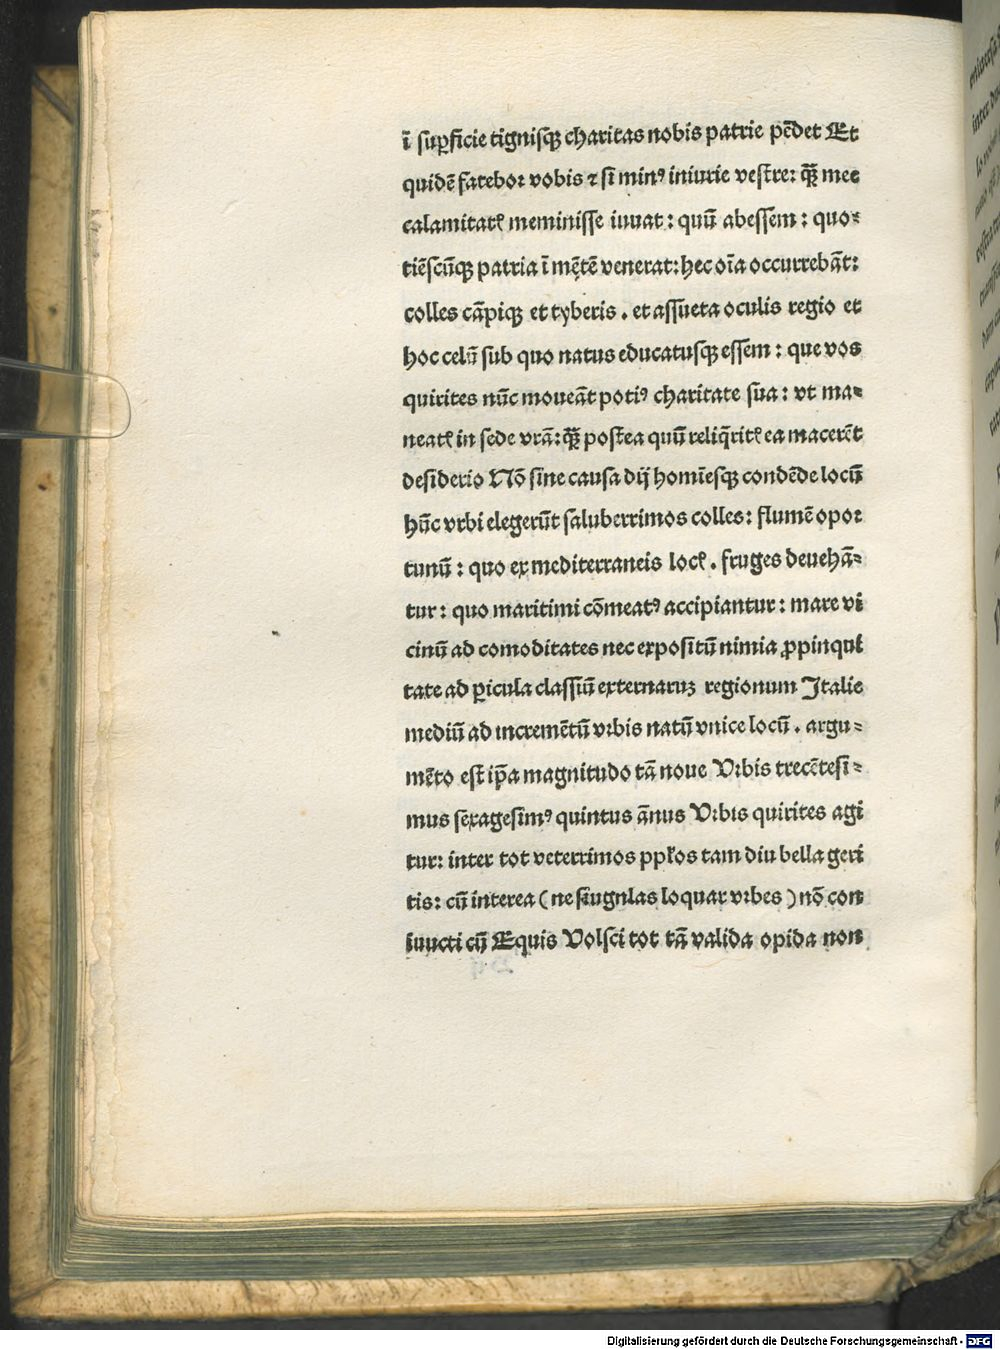 ī suꝑficie tignisqꝫ charitas nobis patrie pēdet Et
quidē fatebor vobis ⁊ si minꝰ iniurie vestre: qꝫ̄ mee
calamitatꝭ meminisse iuuat: quū abessem: quo⸗
tiēscūqꝫ patria ī mētē venerat: hec oīa occurrebāt:
colles cāpiqꝫ et tyberis. et assueta oculis regio et
hoc celū sub quo natus educatusqꝫ essem: que vos
quirites nūc moueāt potiꝰ charitate sua: vt ma⸗
neatꝭ in sede vrā: qꝫ̄ postea quū reliq̄ritꝭ ea macerēt
desiderio Nō sine causa dij homīesqꝫ condēde locū
hūc vrbi elegerūt saluberrimos colles: flumē opor
tunū: quo ex mediterraneis locꝭ. fruges deuehā⸗
tur: quo maritimi cōmeatꝰ accipiantur: mare vi
cinū ad comoditates nec expositū nimia ꝓpinqui
tate ad ꝑicula classiū externaruꝫ regionum Italie
mediū ad incremētū vrbis natū vnice locū. argu⸗
mēto est ip̄a magnitudo tā noue Vrbis trecētesi⸗
mus sexagesimꝰ quintus ānus Vrbis quirites agi
tur: inter tot veterrimos ppłos tam diu bella geri
tis: cū interea (ne singulas loquar vrbes) nō con
iuncti cū Equis Volsci tot tā valida opida non
Digitalisierung gefördert durch die Deutsche Forschungsgemeinschaft - DFG